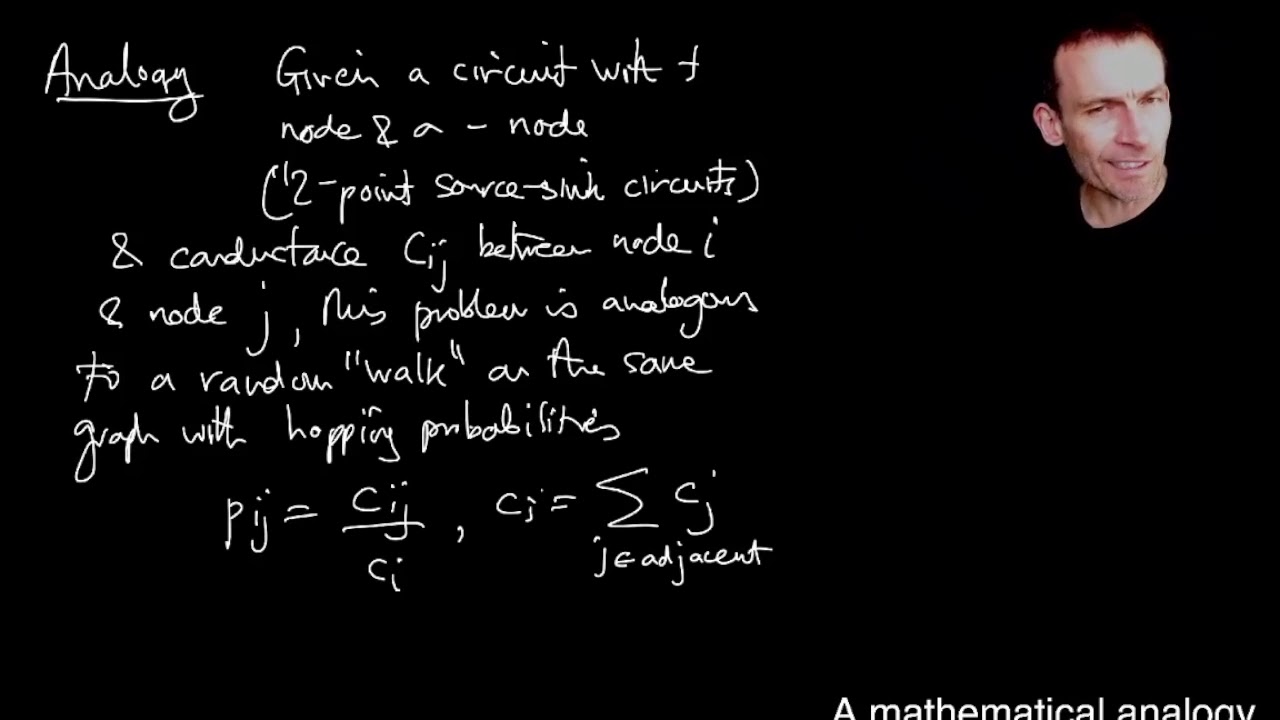 Analogy Given a circuit with +
node & a - node
("2-point source-sink circuits")
& conductance Cij between node i
& node j, this problem is analogous
to a random "walk" on the same
graph with hopping probabilities
pij = cij / ci , ci = ∑ j∈adjacent cj
A mathematical analogy